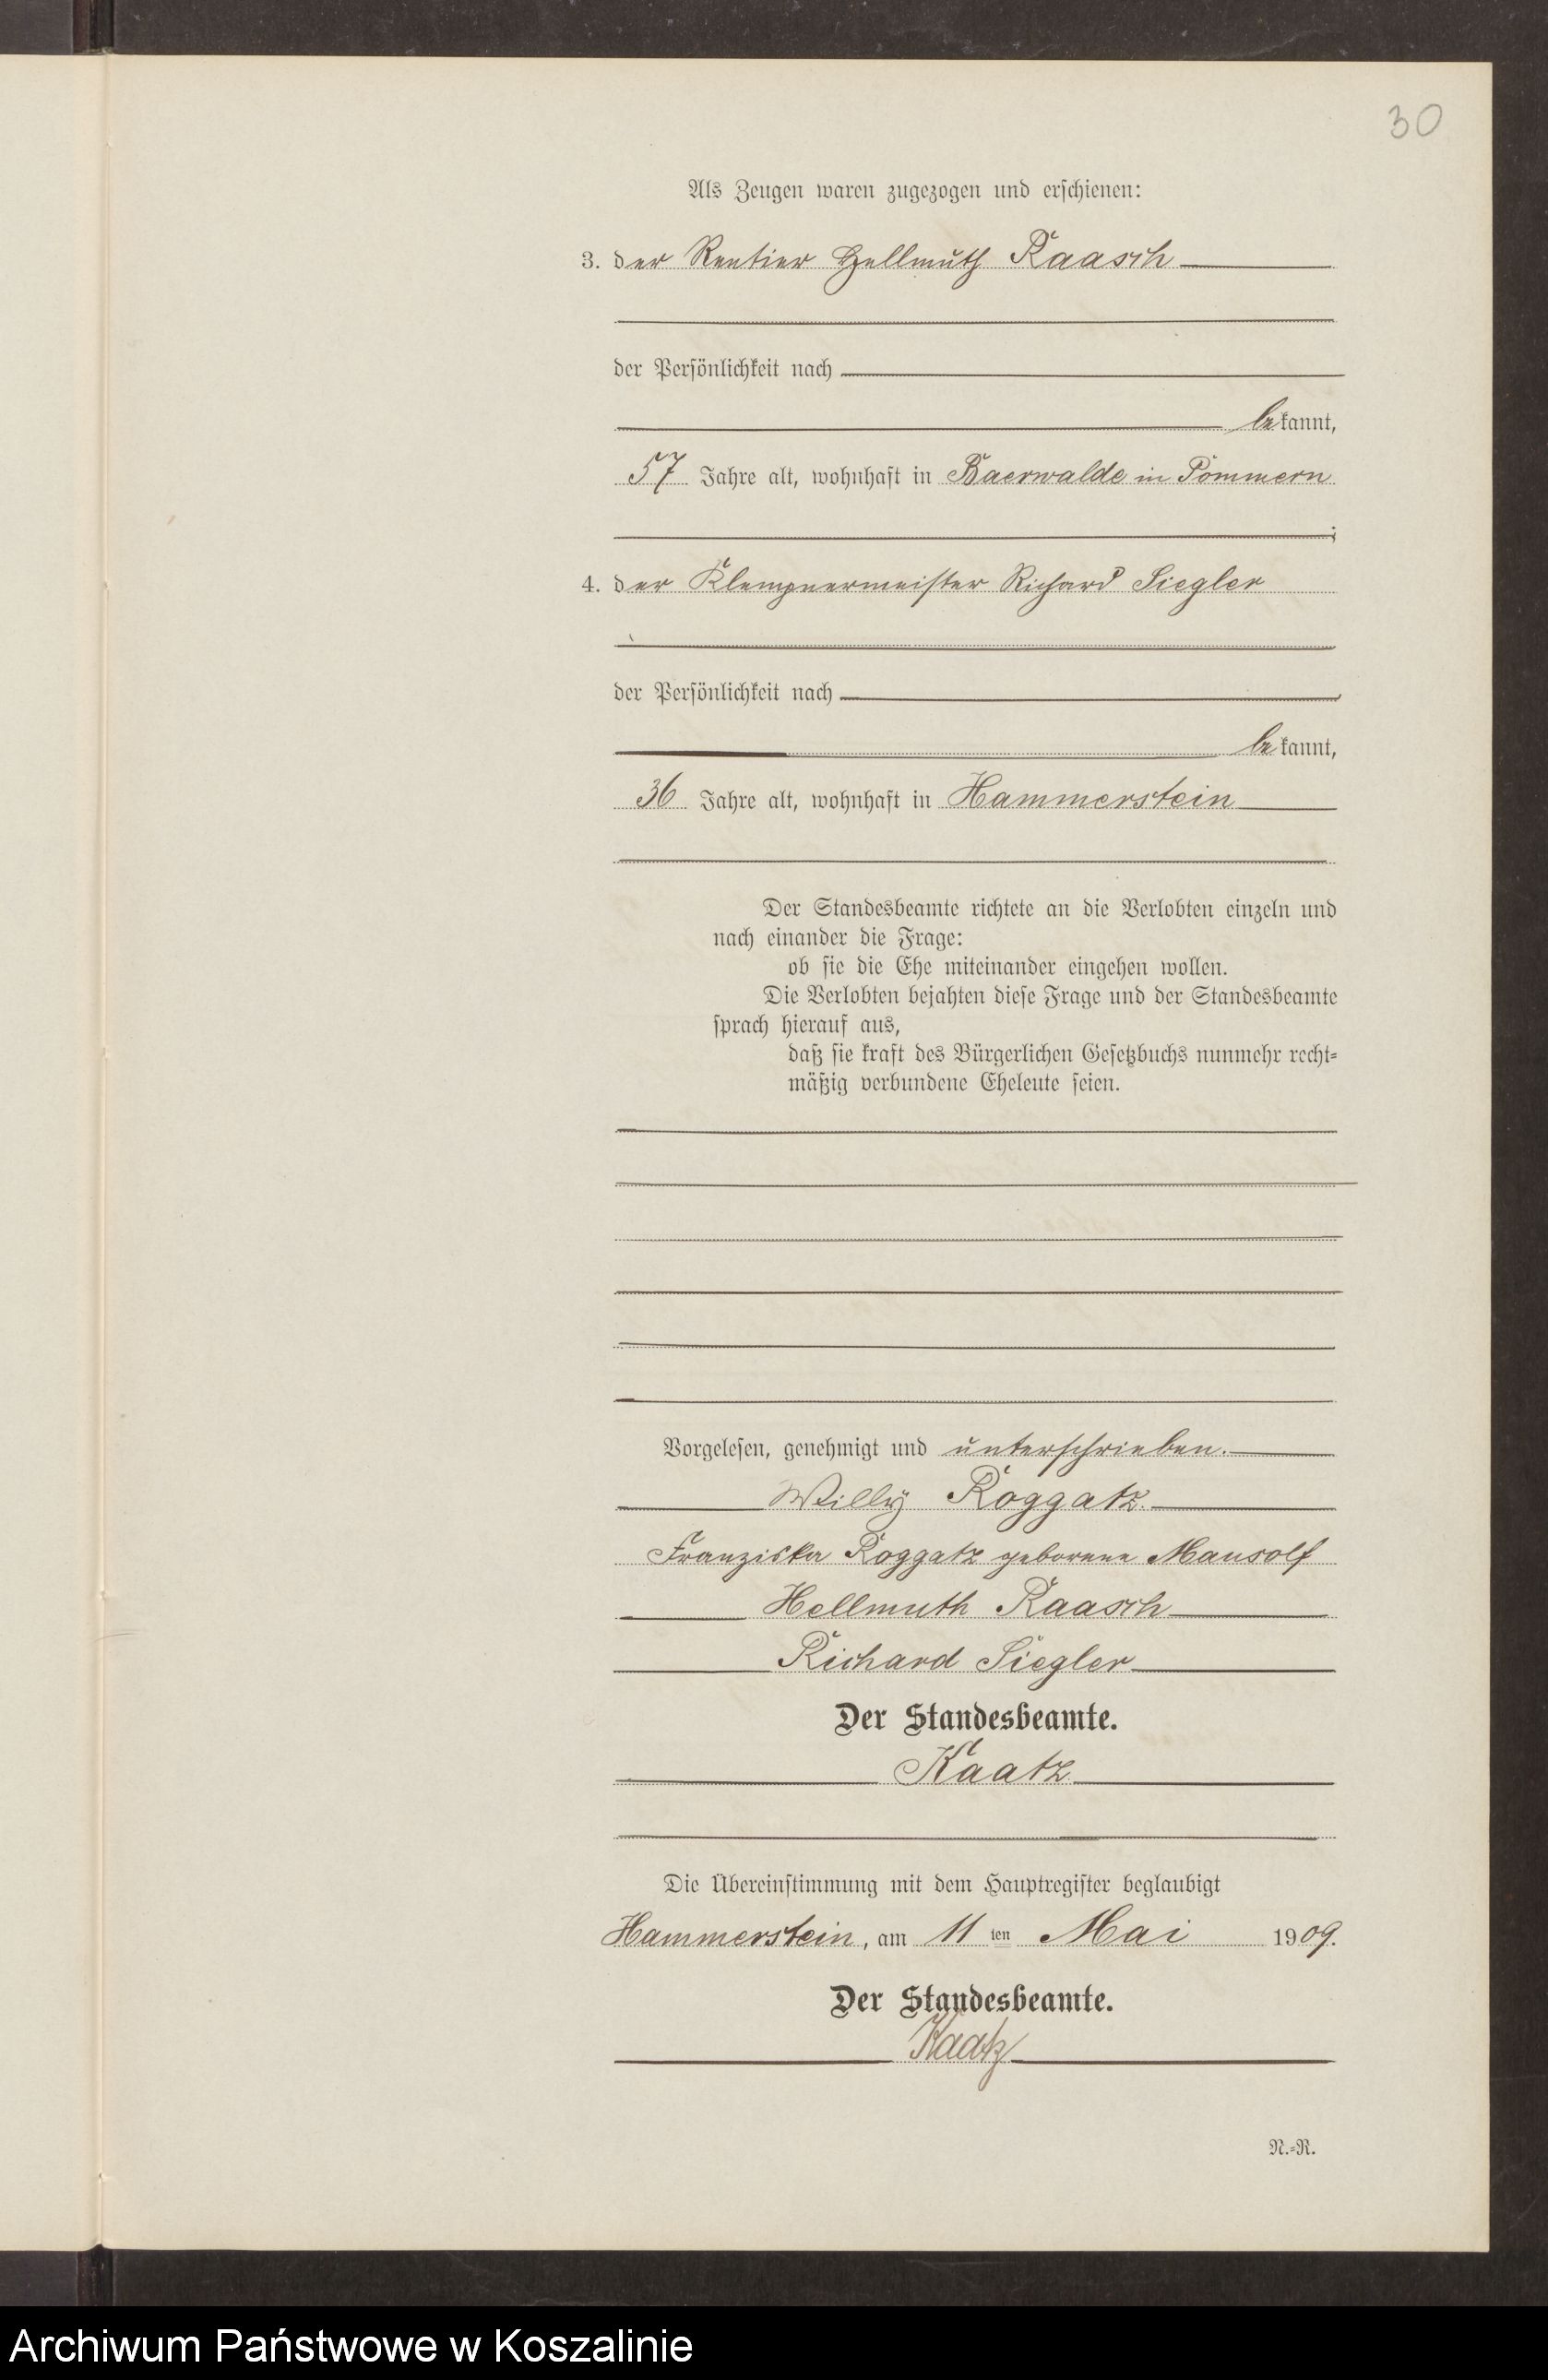 30
Als Zeugen waren zugezogen und erschienen:
3. der Rentier Hellmuth Raasch
der Persönlichkeit nach
bekannt,
57 Jahre alt, wohnhaft in Baerwalde in Pommern
;
4. der Klempnermeister Richard Siegler
der Persönlichkeit nach
bekannt,
36 Jahre alt, wohnhaft in Hammerstein
Der Standesbeamte richtete an die Verlobten einzeln und
nach einander die Frage:
ob sie die Ehe miteinander eingehen wollen.
Die Verlobten bejahten diese Frage und der Standesbeamte
sprach hierauf aus,
daß sie kraft des Bürgerlichen Gesetzbuchs nunmehr recht-
mäßig verbundene Eheleute seien.
Vorgelesen, genehmigt und unterschrieben.
Willy Roggatz.
Franziska Roggatz geborene Mansolf
Hellmuth Raasch
Richard Siegler
Der Standesbeamte.
Kaatz
Die Übereinstimmung mit dem Hauptregister beglaubigt
Hammerstein, am 11ten Mai 1909.
Der Standesbeamte.
Kaatz
N.-R.
Archiwum Państwowe w Koszalinie